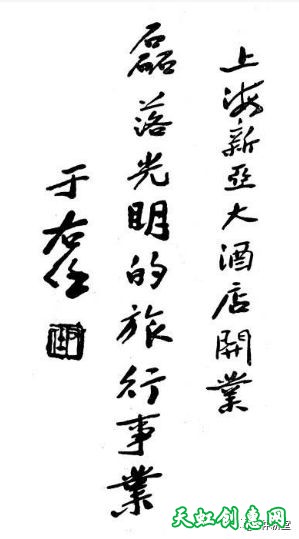 上海新亞大酒店開業
磊落光明的旅行事業
于右任
天虹创意网